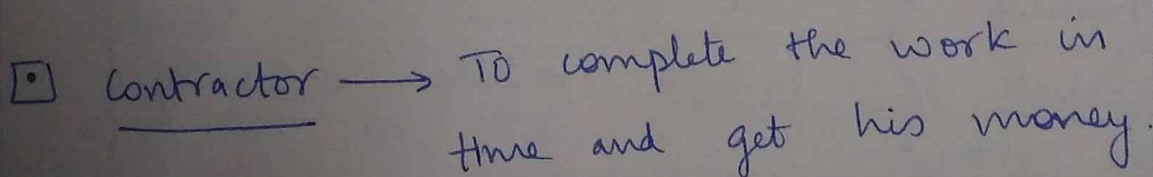 ⊡ Contractor → To complete the work in
time and get his money.